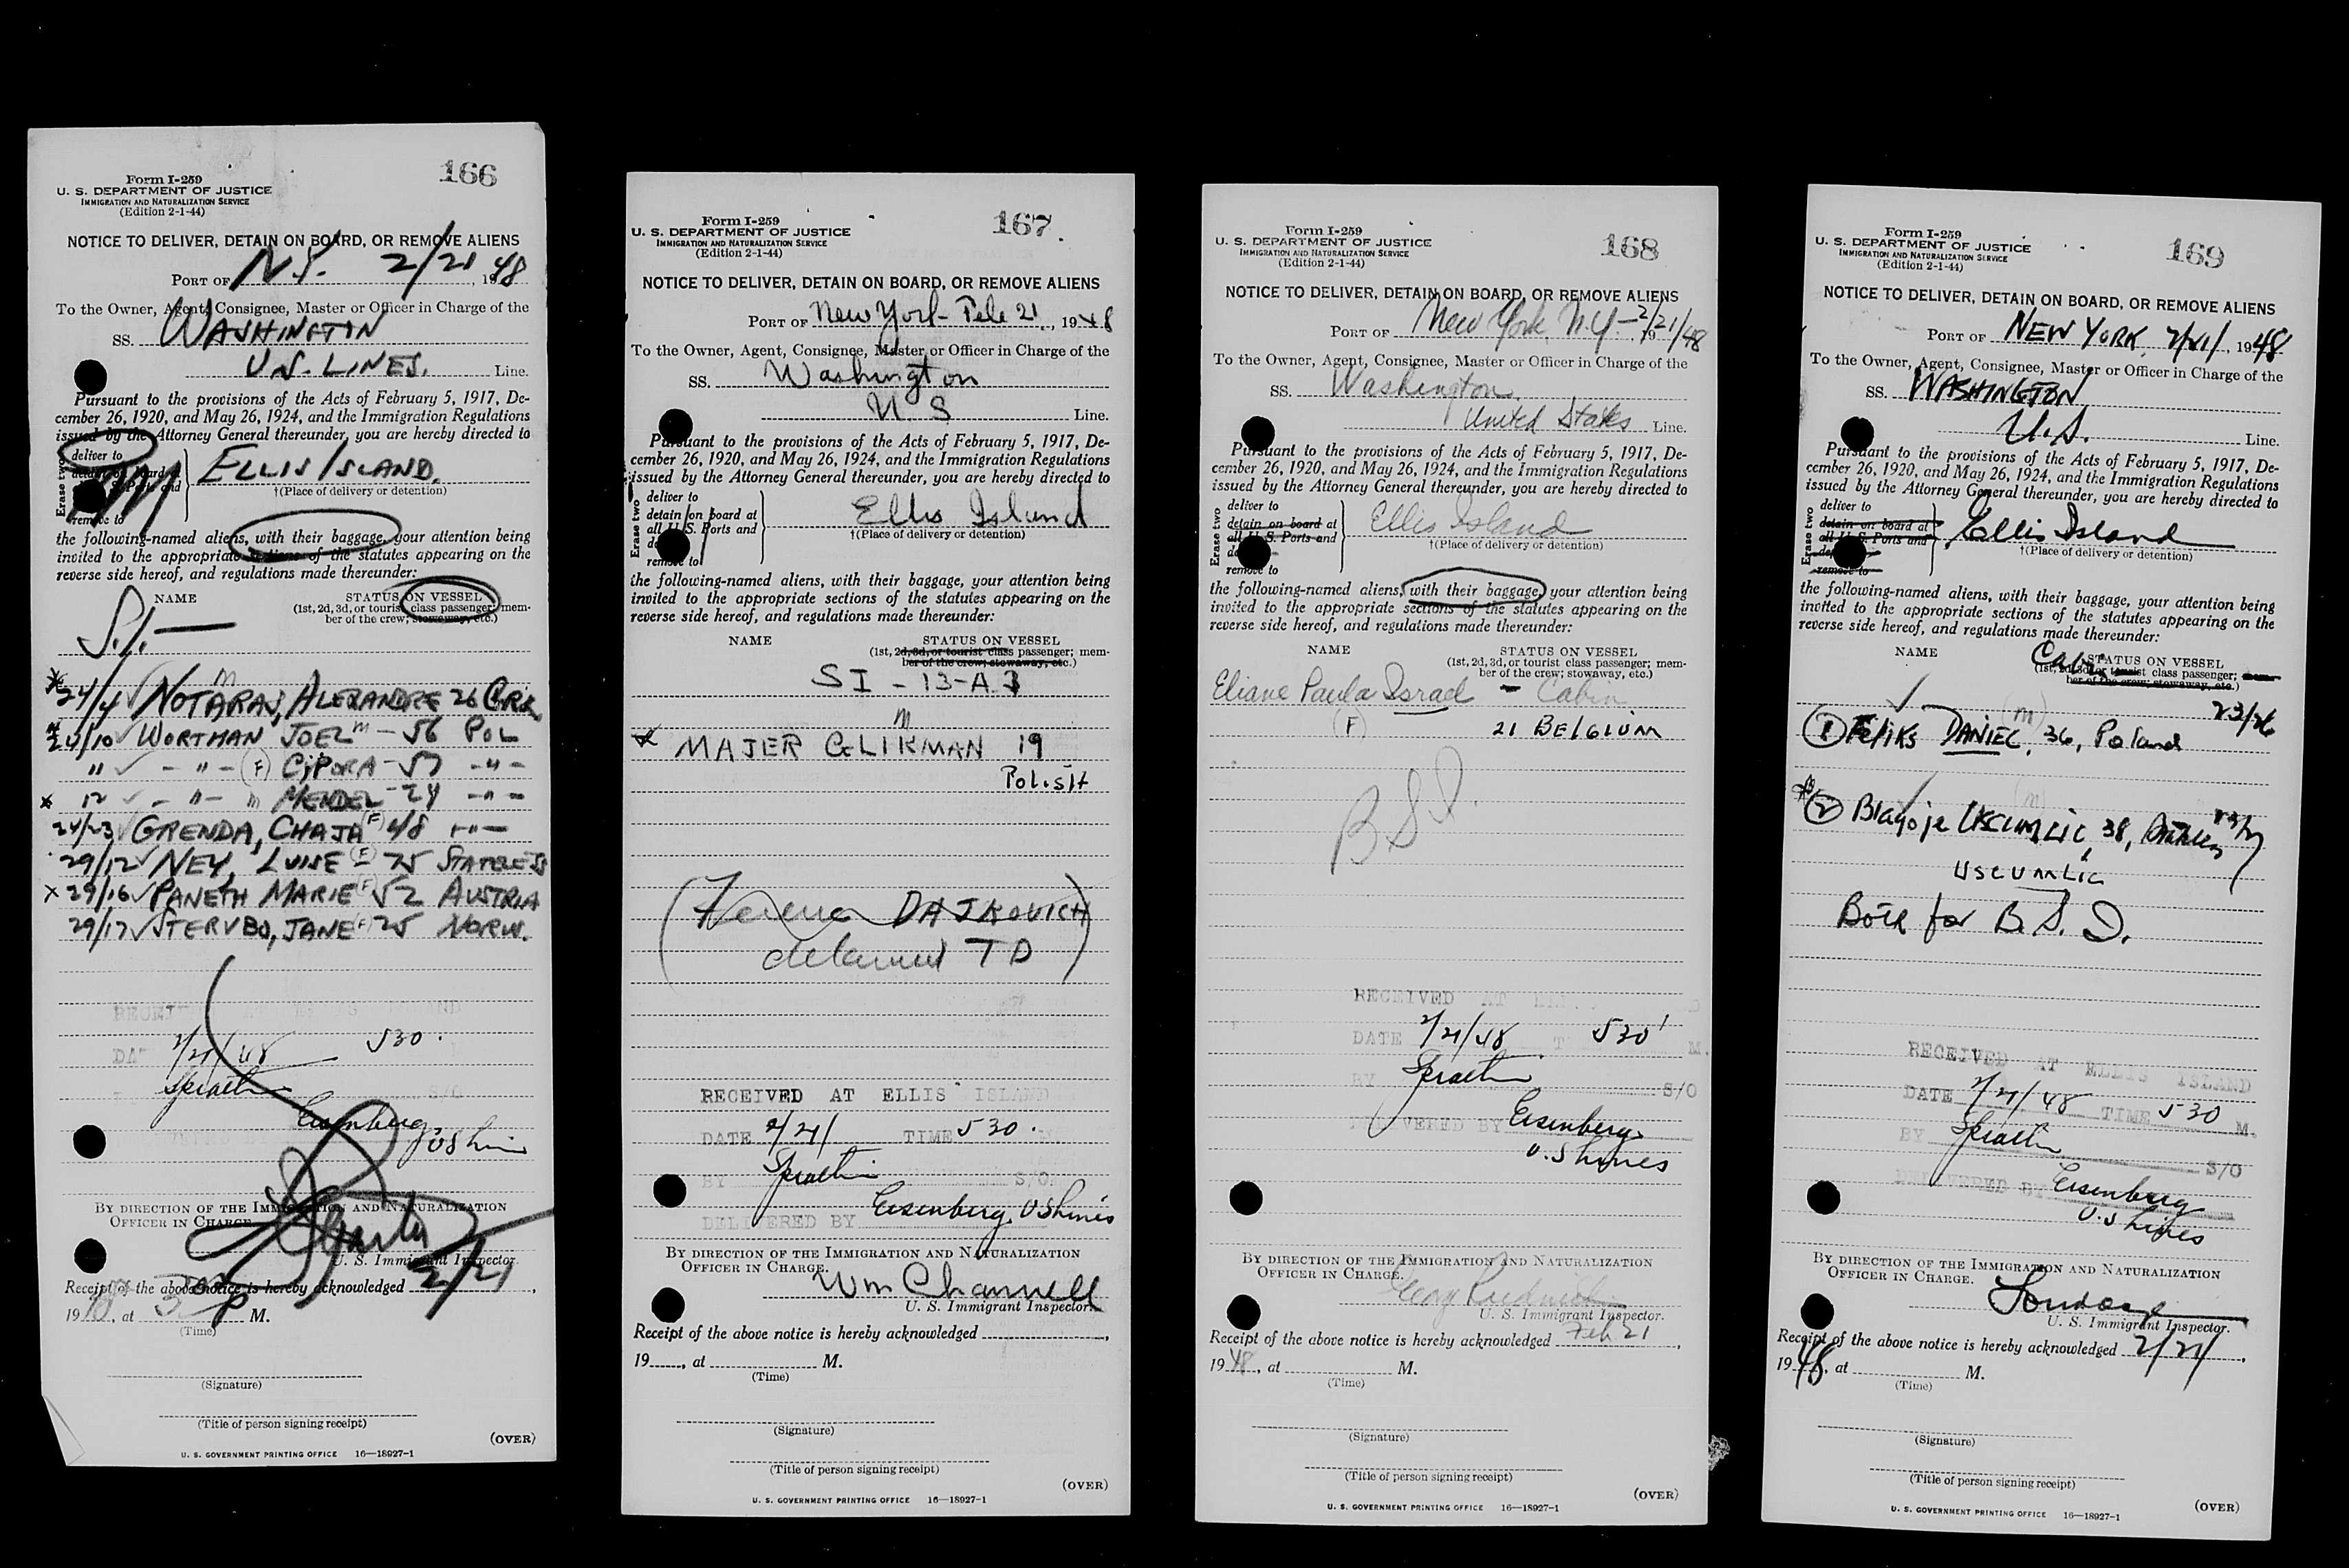 166
Form I-259
U. S. DEPARTMENT OF JUSTICE
IMMIGRATION AND NATURALIZATION SERVICE
(Edition 2-1-44)
NOTICE TO DELIVER, DETAIN ON BOARD, OR REMOVE ALIENS
PORT OF N.Y. 2/21, 1948
To the Owner, Agent, Consignee, Master or Officer in Charge of the
SS. WASHINGTON
U.S. LINES. Line.
Pursuant to the provisions of the Acts of February 5, 1917, De-
cember 26, 1920, and May 26, 1924, and the Immigration Regulations
issued by the Attorney General thereunder, you are hereby directed to
Erase two
deliver to
detain on board at
S. Ports and
remove to
ELLIS ISLAND.
†(Place of delivery or detention)
the following-named aliens, with their baggage, your attention being
invited to the appropriate sections of the statutes appearing on the
reverse side hereof, and regulations made thereunder:
NAME STATUS ON VESSEL
(1st, 2d, 3d, or tourist class passenger; mem-
ber of the crew; stowaway, etc.)
S.I. —
m
24/4 ✓ NOTARAS, ALEXANDRE 26 GRK
24/10 ✓ WORTMAN JOEL m — 56 POL
" ✓ - " - (F) CIPORA - 57 - " -
x 12 ✓ - " - m MENDEL - 24 - " -
24/23 ✓ GRENDA, CHAJA (F) 48 - " -
29/12 ✓ NEY, LUISE (F) - 75 STATELESS
x 29/16 ✓ PANETH MARIE (F) 52 AUSTRIA
29/17 ✓ STERVBO, JANE (F) 25 NORW.
2/21/48 530.
Eisenberg
US Lines
BY DIRECTION OF THE IMMIGRATION AND NATURALIZATION
OFFICER IN CHARGE.
U. S. Immigrant Inspector.
Receipt of the above notice is hereby acknowledged 2/21,
19, at P M.
(Time)
(Signature)
(Title of person signing receipt)
(OVER)
U. S. GOVERNMENT PRINTING OFFICE 16—18927-1
167
Form I-259
U. S. DEPARTMENT OF JUSTICE
IMMIGRATION AND NATURALIZATION SERVICE
(Edition 2-1-44)
NOTICE TO DELIVER, DETAIN ON BOARD, OR REMOVE ALIENS
PORT OF New York - Feb 21, 1948
To the Owner, Agent, Consignee, Master or Officer in Charge of the
SS. Washington
U. S Line.
Pursuant to the provisions of the Acts of February 5, 1917, De-
cember 26, 1920, and May 26, 1924, and the Immigration Regulations
issued by the Attorney General thereunder, you are hereby directed to
Erase two
deliver to
detain on board at
all U. S. Ports and
remove to
Ellis Island
†(Place of delivery or detention)
the following-named aliens, with their baggage, your attention being
invited to the appropriate sections of the statutes appearing on the
reverse side hereof, and regulations made thereunder:
NAME STATUS ON VESSEL
(1st, 2d, 3d, or tourist class passenger; mem-
ber of the crew; stowaway, etc.)
SI - 13-A3
m
x MAJER GLIKMAN 19
Polish
DAJKOVICH
detained TD
RECEIVED AT ELLIS ISLAND
DATE 2/21/ TIME 530. M.
BY S/O
DELIVERED BY Eisenberg US Lines
BY DIRECTION OF THE IMMIGRATION AND NATURALIZATION
OFFICER IN CHARGE.
Wm Channell
U. S. Immigrant Inspector.
Receipt of the above notice is hereby acknowledged
19, at M.
(Time)
(Signature)
(Title of person signing receipt)
(OVER)
U. S. GOVERNMENT PRINTING OFFICE 16—18927-1
168
Form I-259
U. S. DEPARTMENT OF JUSTICE
IMMIGRATION AND NATURALIZATION SERVICE
(Edition 2-1-44)
NOTICE TO DELIVER, DETAIN ON BOARD, OR REMOVE ALIENS
PORT OF New York, N.Y. - 2/21/48, 19
To the Owner, Agent, Consignee, Master or Officer in Charge of the
SS. Washington
United States Line.
Pursuant to the provisions of the Acts of February 5, 1917, De-
cember 26, 1920, and May 26, 1924, and the Immigration Regulations
issued by the Attorney General thereunder, you are hereby directed to
Erase two
deliver to
detain on board at
all U. S. Ports and
remove to
Ellis Island
†(Place of delivery or detention)
the following-named aliens, with their baggage, your attention being
invited to the appropriate sections of the statutes appearing on the
reverse side hereof, and regulations made thereunder:
NAME STATUS ON VESSEL
(1st, 2d, 3d, or tourist class passenger; mem-
ber of the crew; stowaway, etc.)
Eliane Paula Israel - Cabin
(F) 21 BELGIUM
B S I.
RECEIVED AT
DATE 2/21/48 530 M.
BY S/O
DELIVERED BY Eisenberg
U.S Lines
BY DIRECTION OF THE IMMIGRATION AND NATURALIZATION
OFFICER IN CHARGE.
U. S. Immigrant Inspector.
Receipt of the above notice is hereby acknowledged Feb 21,
1948, at M.
(Time)
(Signature)
(Title of person signing receipt)
(OVER)
U. S. GOVERNMENT PRINTING OFFICE 16—18927-1
169
Form I-259
U. S. DEPARTMENT OF JUSTICE
IMMIGRATION AND NATURALIZATION SERVICE
(Edition 2-1-44)
NOTICE TO DELIVER, DETAIN ON BOARD, OR REMOVE ALIENS
PORT OF NEW YORK, 2/21/, 1948
To the Owner, Agent, Consignee, Master or Officer in Charge of the
SS. WASHINGTON
U.S. Line.
Pursuant to the provisions of the Acts of February 5, 1917, De-
cember 26, 1920, and May 26, 1924, and the Immigration Regulations
issued by the Attorney General thereunder, you are hereby directed to
Erase two
deliver to
detain on board at
all U. S. Ports and
remove to
Ellis Island
†(Place of delivery or detention)
the following-named aliens, with their baggage, your attention being
invited to the appropriate sections of the statutes appearing on the
reverse side hereof, and regulations made thereunder:
NAME Cabin STATUS ON VESSEL
(1st, 2d, 3d, or tourist class passenger; mem-
ber of the crew; stowaway, etc.)
(m) 23/26
① Feliks DANIEC, 36, Poland
(m)
② Blagoje USCUMLIC, 38,
USCUMLIC
Both for B. S. I.
RECEIVED AT ELLIS ISLAND
DATE 2/21/48 TIME 530 M.
BY S/O
DELIVERED BY Eisenberg
U.S Lines
BY DIRECTION OF THE IMMIGRATION AND NATURALIZATION
OFFICER IN CHARGE.
U. S. Immigrant Inspector.
Receipt of the above notice is hereby acknowledged 2/21/,
1948, at M.
(Time)
(Signature)
(Title of person signing receipt)
(OVER)
U. S. GOVERNMENT PRINTING OFFICE 16—18927-1